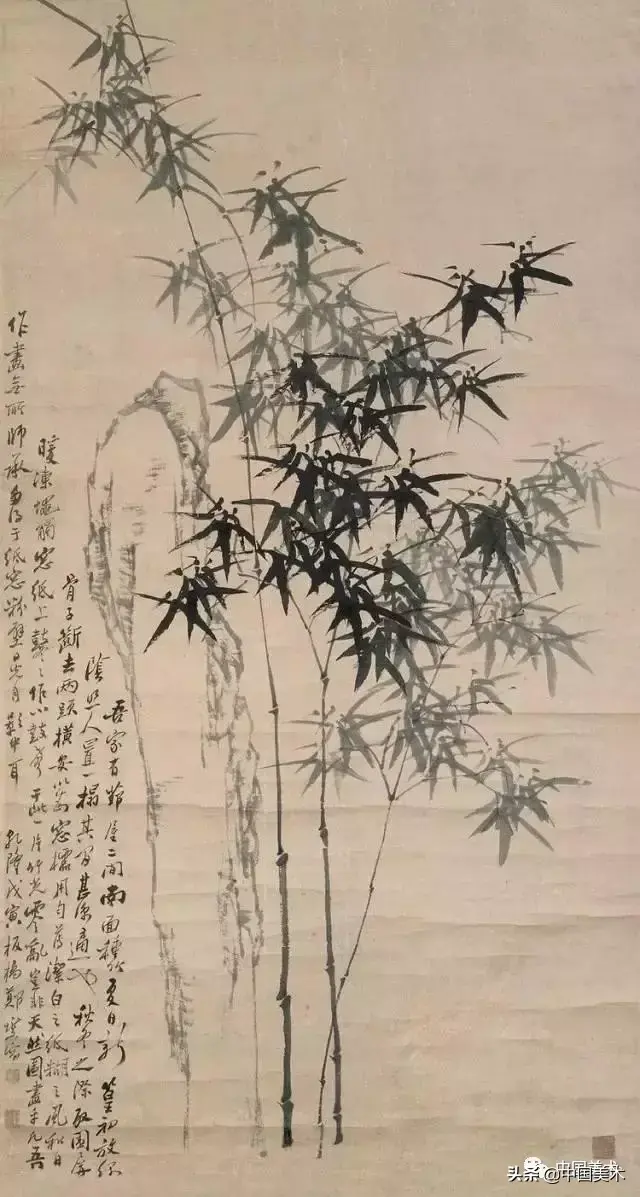 吾家有茅屋二間南面種竹夏日新篁初放綠
陰照人置一榻其中甚涼適也秋冬之際取圍屏
骨子斷去兩頭橫安以為窓櫺用勻薄潔白之紙糊之風和日
暖凍蠅觸窓紙上鼕〻作小鼓聲于此一片竹光零亂豈非天然圖畫乎凡吾
作畫無所師承多得于紙窓粉壁日光月影中耳 乾隆戊寅板橋鄭燮
中国美术
头条 @中国美术